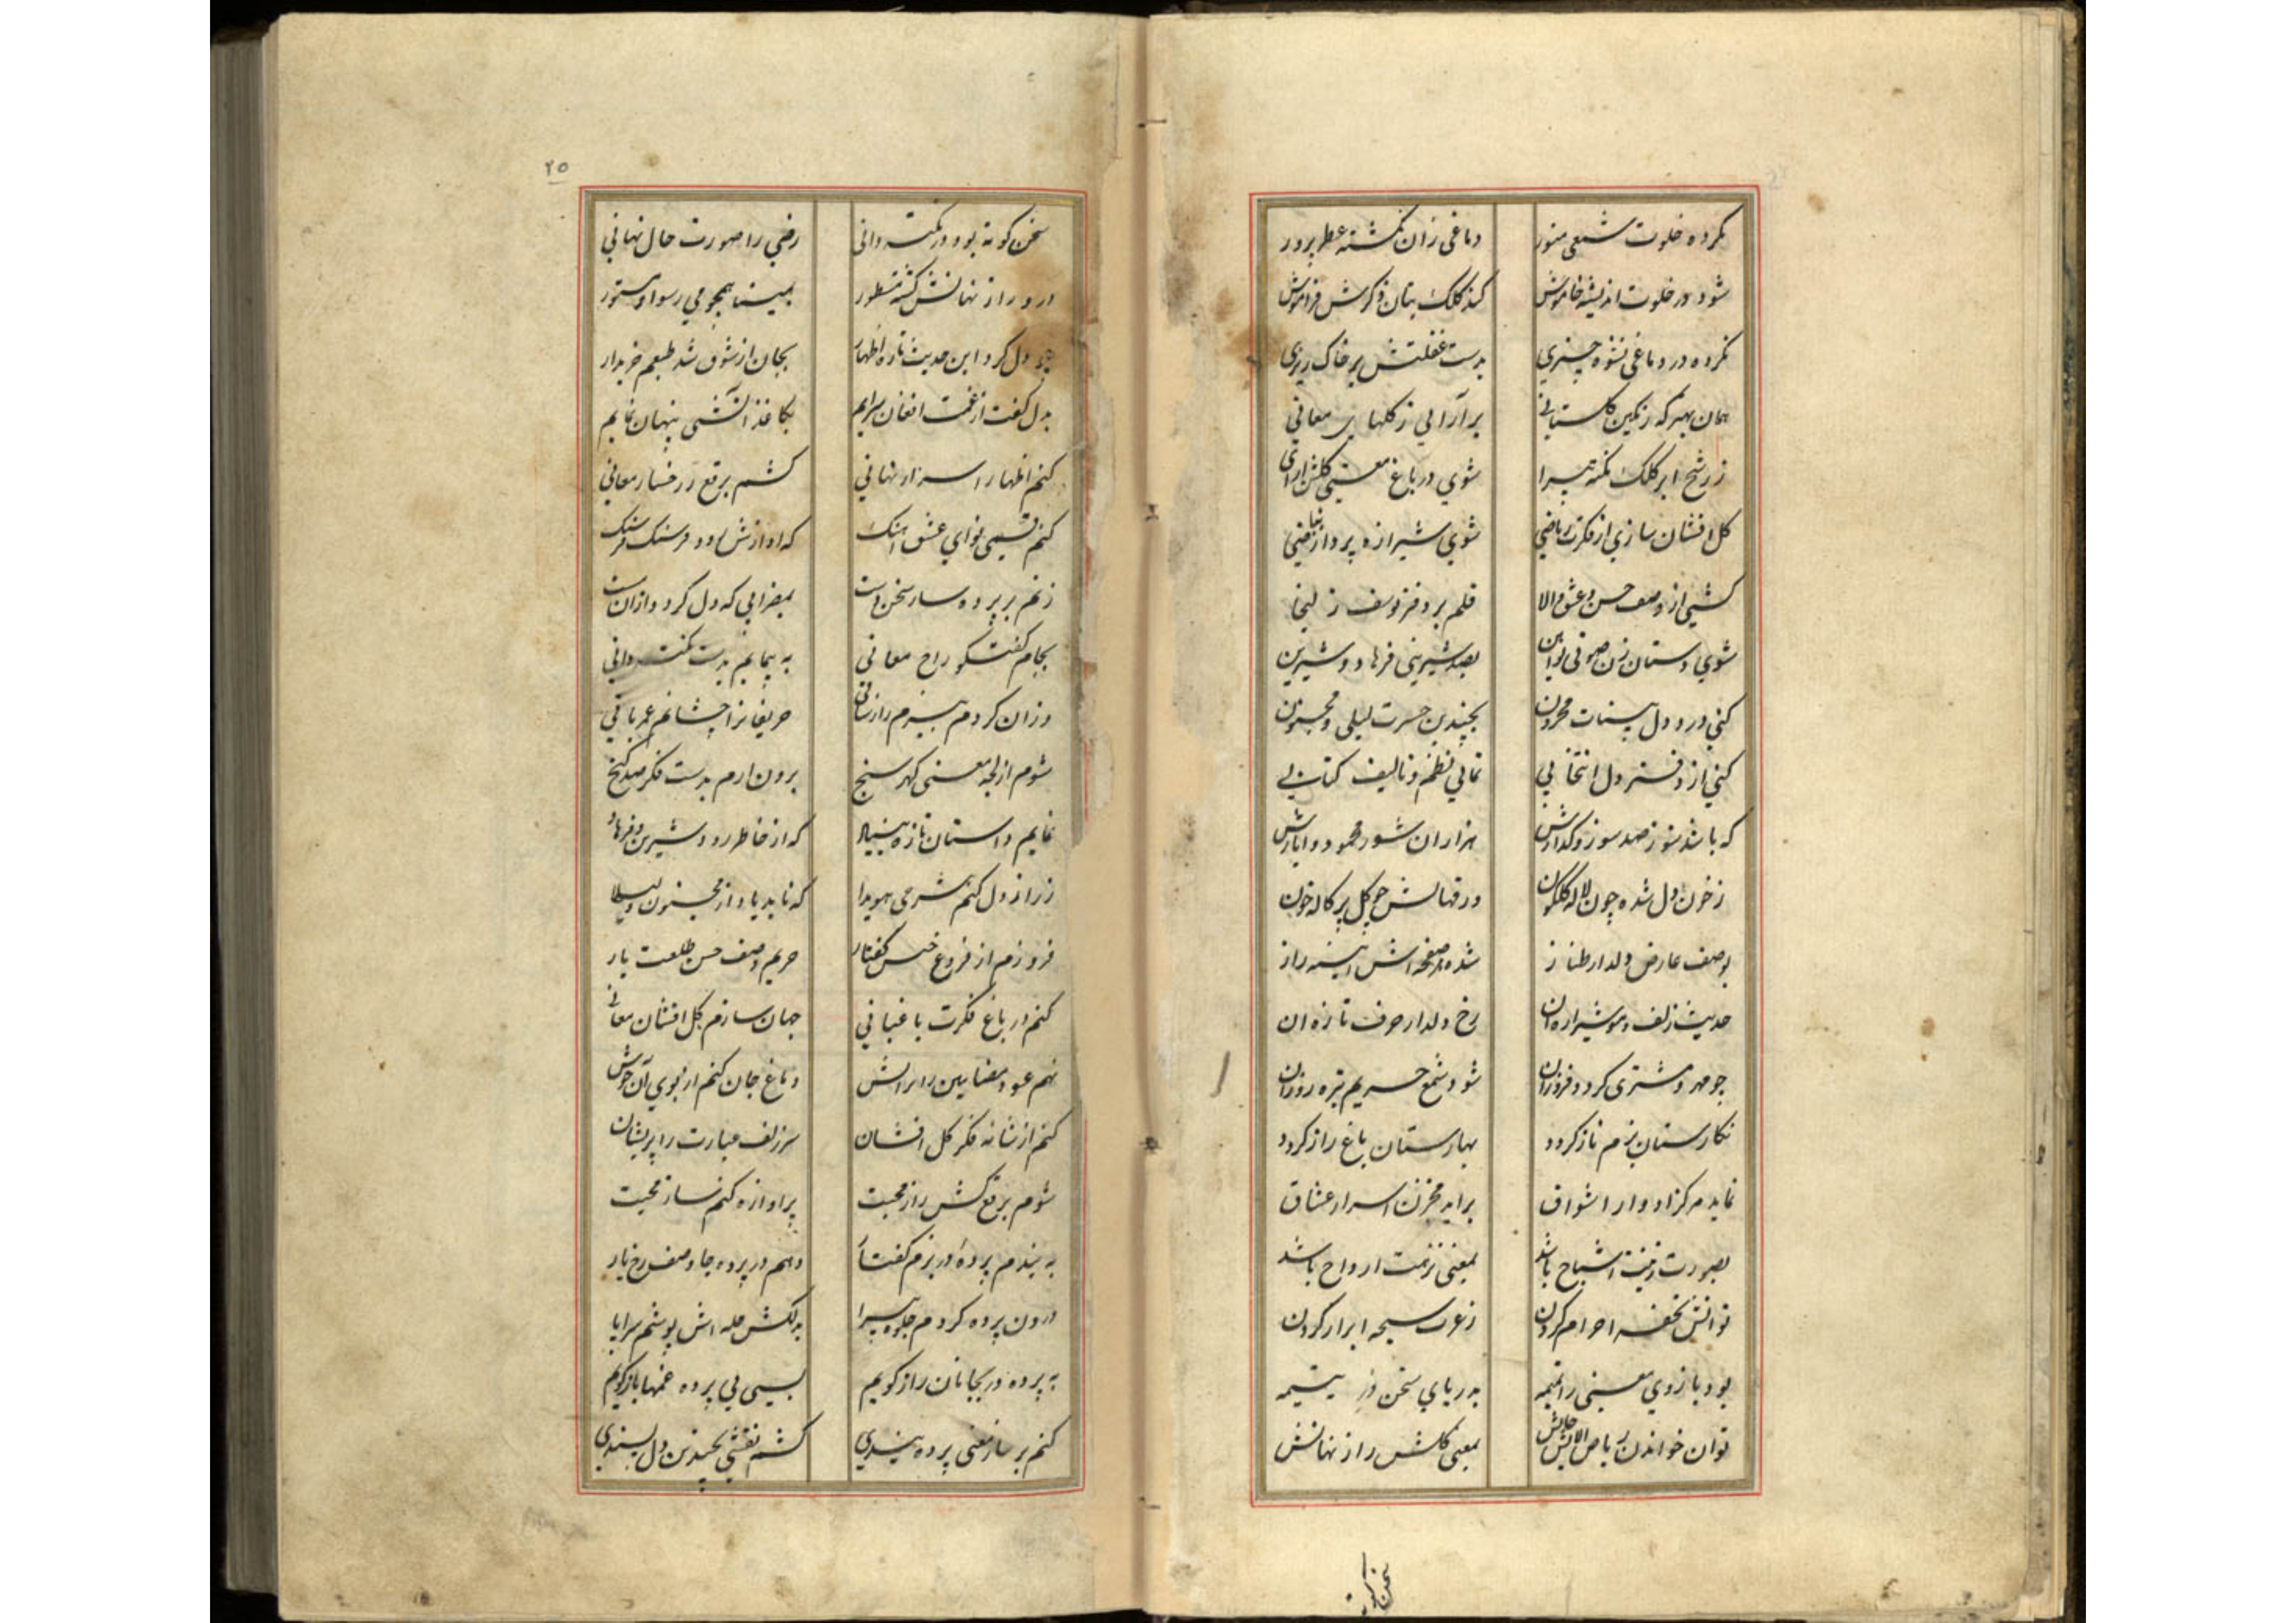 نکرده خلوت شمعی منور دماغی زان نکشته عطر پرور
شود در خلوت اندیشه خاموش کند کلک بنان ذکرش فراموش
نکرده در دماغی نشوه خیزی بدست غفلتش بر خاک ریزی
همان بهتر که رنکین کلستانی برآرایی ز کلهای معانی
ز رشح ابر کلک نکته پیرا شوی در باغ معنی کلشن ارای
کل افشان سازی از فکرت ریاضی شوی شیرازه پرداز
کشی از وصف حسن و عشق والا قلم بر دفتر یوسف زلیخا
شوی دستان زن صوتی نو آیین بصد شیرینی فرهاد و شیرین
کنی درد دل محزون بچندین حسرت لیلی و مجنون
کنی از دفتر دل انتخابی نمایی نظم و تالیف کتابی
که باشد سوز صد سوز و کدازش هزاران شور محمود و ایازش
ز خون دل شده چون لاله کلکون ورقهایش چو کل پرکاله خون
بوصف عارض دلدار طناز شده هر صفحه اش ایینه راز
حدیث زلف و مو شیرازه ان رخ دلدار حرف تازه ان
چو مهر و مشتری کردد فروزان شود شمع حریم تیره روزان
نکارستان بزم ناز کردد بهارستان باغ راز کردد
نماید مرکز ادوار اشواق براید مخزن اسرار عشاق
بصورت زینت اشباح باشد بمعنی نزهت ارواح باشد
توانش تحفه احرام کردن ز عزت سبحه ابرار کردن
بود بازوی معنی را تمیمه بدریای سخن در یتیمه
توان خواندن ریاض بمعنی کلشن راز نهانش
سخن کوته
۲۵
سخن کوته بود در نکته دانی رضی را صورت حال نهانی
درو راز نهانش کشته مسطور به مینا همچو می رسوا و مستور
چو دل کرد این حدیث تازه اظهار بجان از شوق شد طبعم خریدار
بدل کفت از غمت افغان سرایم بکاغذ اتشی پنهان نمایم
کنم اظهار اسرار نهانی کشم برقع ز رخسار معانی
کنم نوای عشق اهنک که اوازش رود فرسنک فرسنک
زنم بر پرده ساز سخن دست بمضرابی که دل کردد ازان مست
بجام کفتکو راح معانی به پیمایم بدست نکته دانی
وزان کردم ببزم راز ساقی حریفانرا چشانم عمر باقی
شوم از لجه معنی کهر سنج برون ارم بدست فکر صد کنج
نمایم داستان تازه بنیاد که از خاطر رود شیرین و فرهاد
ز راز دل کنم شرحی هویدا که ناید یاد از مجنون و لیلا
فروزم از فروغ حسن کفتار حریم وصف حسن طلعت یار
کنم در باغ فکرت باغبانی جهان سازم کل افشان معانی
نهم عود مضامین را بر اتش دماغ جان کنم از بوی آن خوش
کنم از شانه فکر کل افشان سر زلف عبارت را پریشان
شوم برقع کش راز محبت پر اوازه کنم ساز محبت
به بندم پرده در بزم کفتار دهم در پرده جا وصف رخ یار
درون پرده کردم جلوه پیرا بدلکش حله اش پوشم سراپا
به پرده در بجانان راز کویم بسی بی پرده غمها باز کویم
کنم بر ساز معنی پرده بندی کشم نقشی بچندین دل پسندی